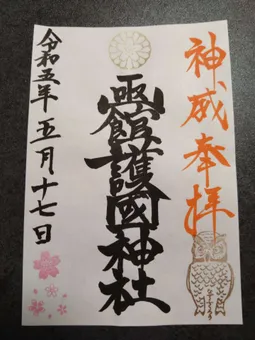 神威奉拝
函館護國神社
令和五年五月十七日